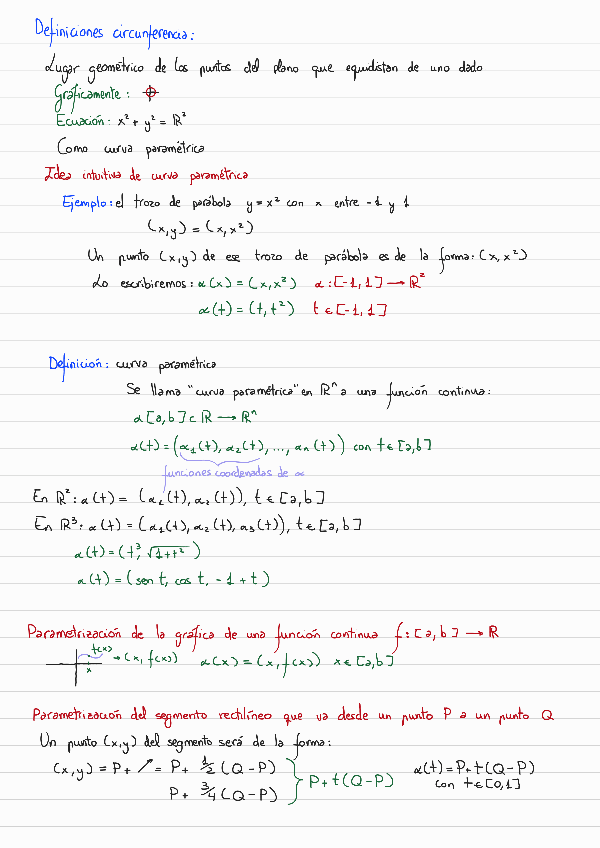 Definiciones circunferencia:
Lugar geométrico de los puntos del plano que equidistan de uno dado
Gráficamente:
Ecuación: x² + y² = R²
Como curva paramétrica
Idea intuitiva de curva paramétrica
Ejemplo: el trozo de parábola y = x² con x entre -1 y 1
(x,y) = (x,x²)
Un punto (x,y) de ese trozo de parábola es de la forma: (x,x²)
Lo escribiremos: α(x) = (x,x²) α: [-1,1] → ℝ²
α(t) = (t,t²) t ∈ [-1,1]
Definición: curva paramétrica
Se llama "curva paramétrica" en ℝⁿ a una función continua:
α [a,b] ⊂ ℝ → ℝⁿ
α(t) = (α₁(t), α₂(t), ..., αn(t)) con t ∈ [a,b]
funciones coordenadas de α
En ℝ²: α(t) = (α₂(t), α₂(t)), t ∈ [a,b]
En ℝ³: α(t) = (α₁(t), α₂(t), α₃(t)), t ∈ [a,b]
α(t) = (t³, √1+t²)
α(t) = (sen t, cos t, -1 + t)
Parametrización de la gráfica de una función continua f: [a,b] → ℝ
f(x)
x → (x, f(x)) α(x) = (x, f(x)) x ∈ [a,b]
Parametrización del segmento rectilíneo que va desde un punto P a un punto Q
Un punto (x,y) del segmento será de la forma:
(x,y) = P + ↗ = P + 1/2 (Q-P) α(t) = P + t(Q-P)
P + 3/4 (Q-P) P + t(Q-P) con t ∈ [0,1]